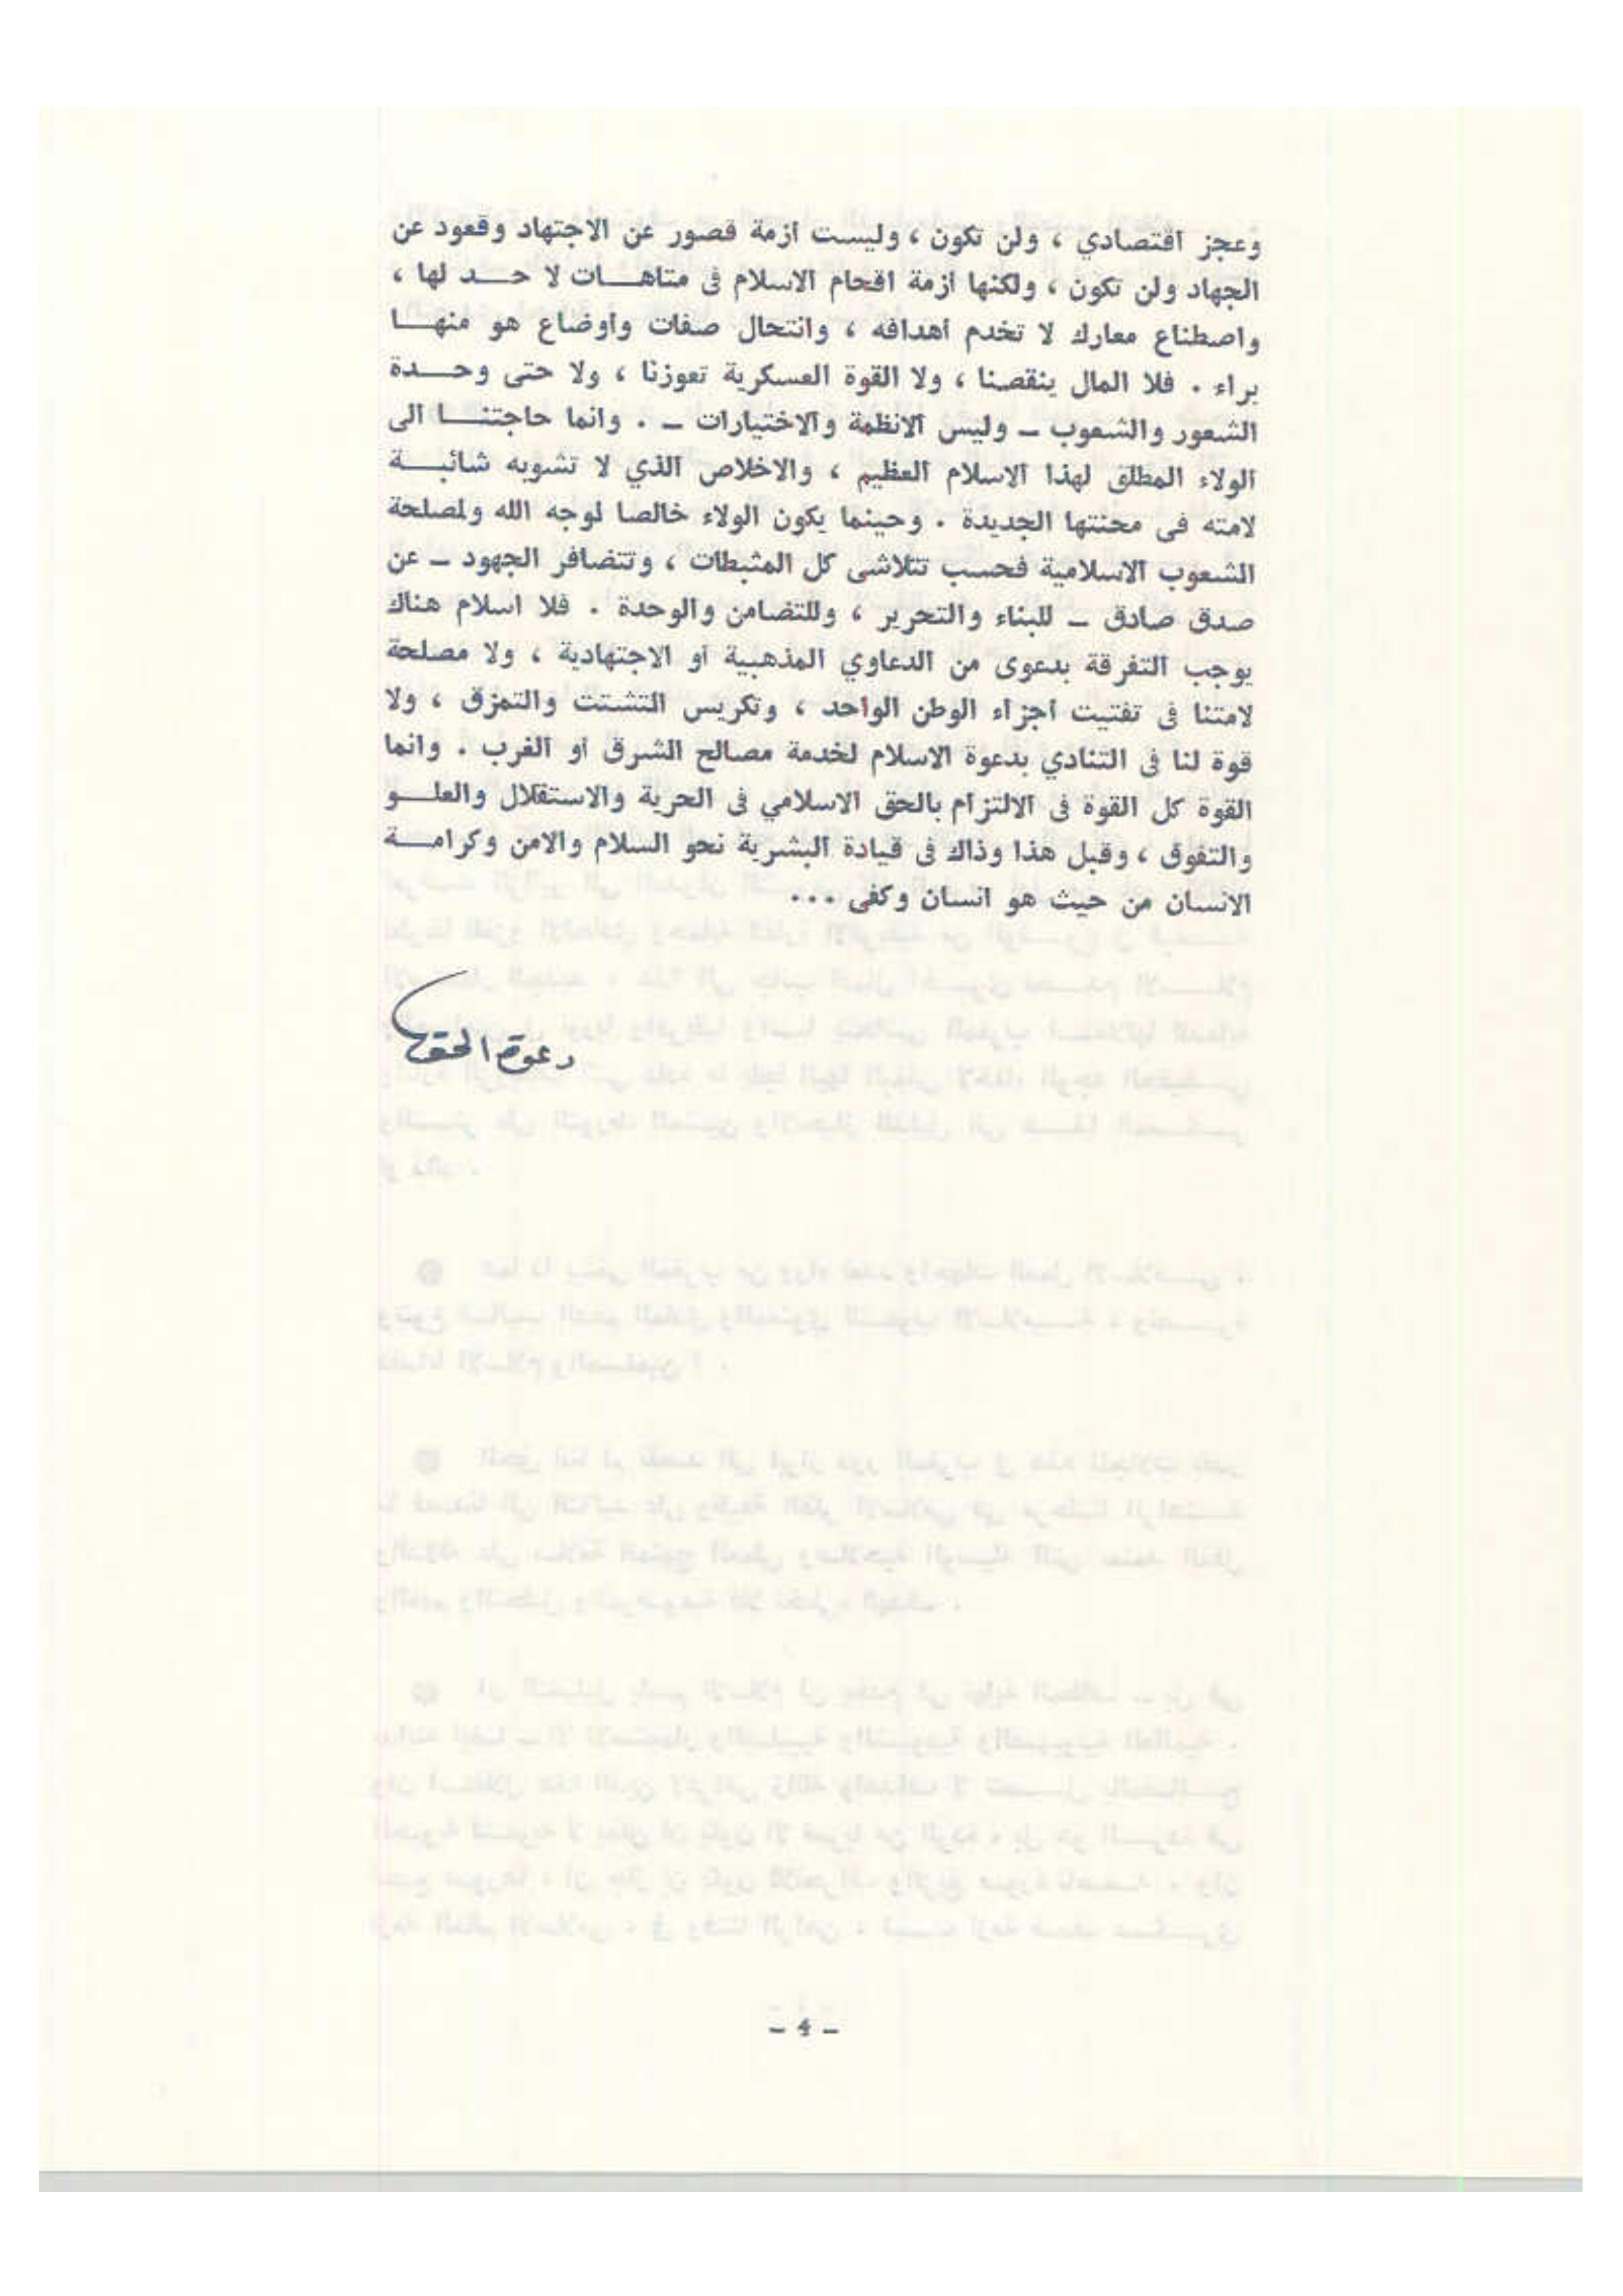 وعجز اقتصادي ، ولن تكون ، وليست ازمة قصور عن الاجتهاد وقعود عن
الجهاد ولن تكون ، ولكنها ازمة اقحام الاسلام في متاهــات لا حــد لها ،
واصطناع معارك لا تخدم أهدافه ، وانتحال صفات وأوضاع هو منهــا
براء . فلا المال ينقصنا ، ولا القوة العسكرية تعوزنا ، ولا حتى وحــدة
الشعور والشعوب ــ وليس الانظمة والاختيارات ــ . وانما حاجتنــا الى
الولاء المطلق لهذا الاسلام العظيم ، والاخلاص الذي لا تشوبه شائبــة
لامته في محنتها الجديدة . وحينما يكون الولاء خالصا لوجه الله ولمصلحة
الشعوب الاسلامية فحسب تتلاشى كل المثبطات ، وتتضافر الجهود ــ عن
صدق صادق ــ للبناء والتحرير ، وللتضامن والوحدة . فلا اسلام هناك
يوجب التفرقة بدعوى من الدعاوي المذهبية أو الاجتهادية ، ولا مصلحة
لامتنا في تفتيت أجزاء الوطن الواحد ، وتكريس التشتت والتمزق ، ولا
قوة لنا في التنادي بدعوة الاسلام لخدمة مصالح الشرق أو الغرب . وانما
القوة كل القوة في الالتزام بالحق الاسلامي في الحرية والاستقلال والعلــو
والتفوق ، وقبل هذا وذاك في قيادة البشرية نحو السلام والامن وكرامــة
الانسان من حيث هو انسان وكفى ...
دعوة الحق
ــ 4 ــ